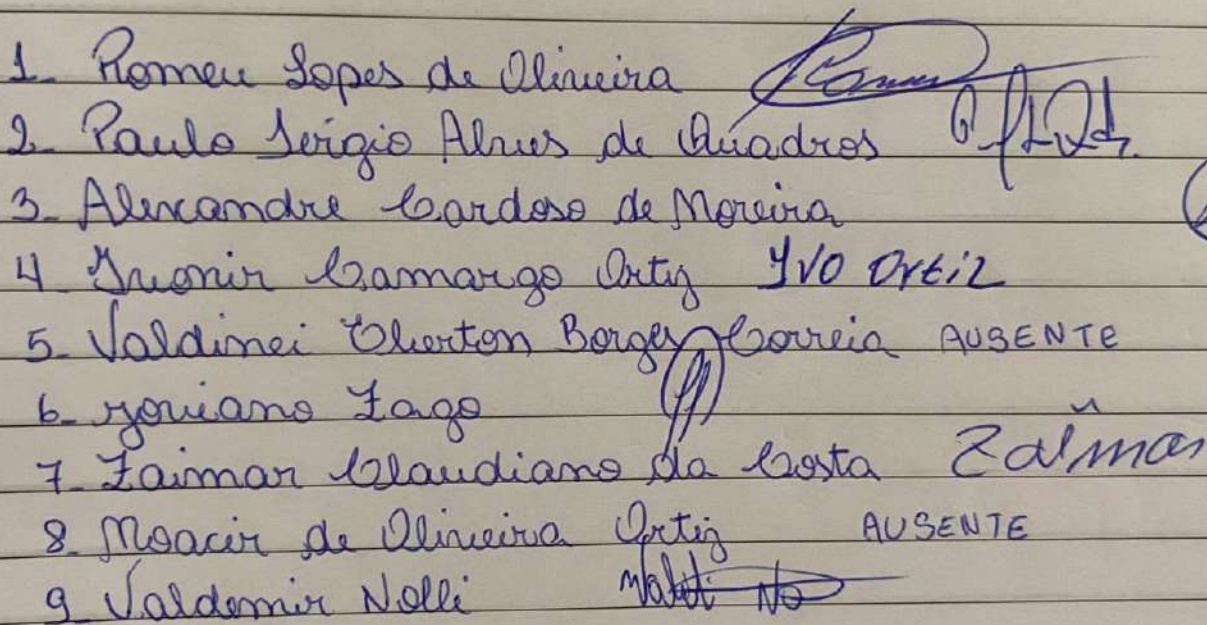 1 Romeu Lopes de Oliveira
2 Paulo Sergio Alves de Quadros
3- Alexandre Cardoso de Moreira
4 Ivonir Camargo Ortiz IVO Ortiz
5- Valdinei Cherton Borges Correia AUSENTE
6- Joviano Zago
7- Zaimar Claudiano da Costa Zaimar
8- Moacir de Oliveira Ortiz AUSENTE
9 Valdemir Nolli